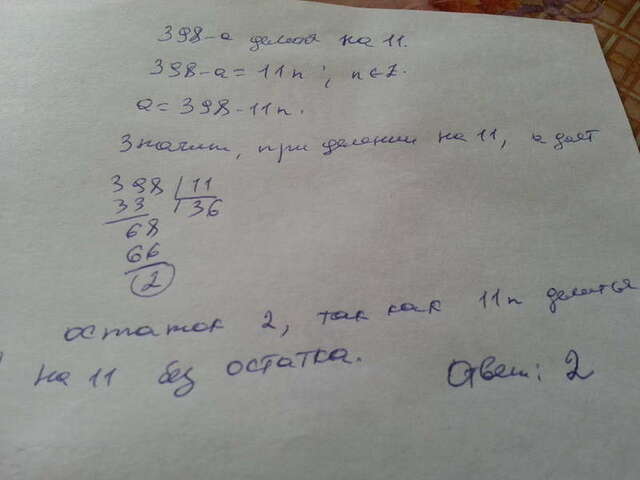 398-a делится на 11.
398-a = 11n ; n ∈ Z.
a = 398 - 11n.
Значит, при делении на 11, a даёт
398 | 11
33 | 36
68
66
2
остаток 2, так как 11n делится
на 11 без остатка.
Ответ: 2